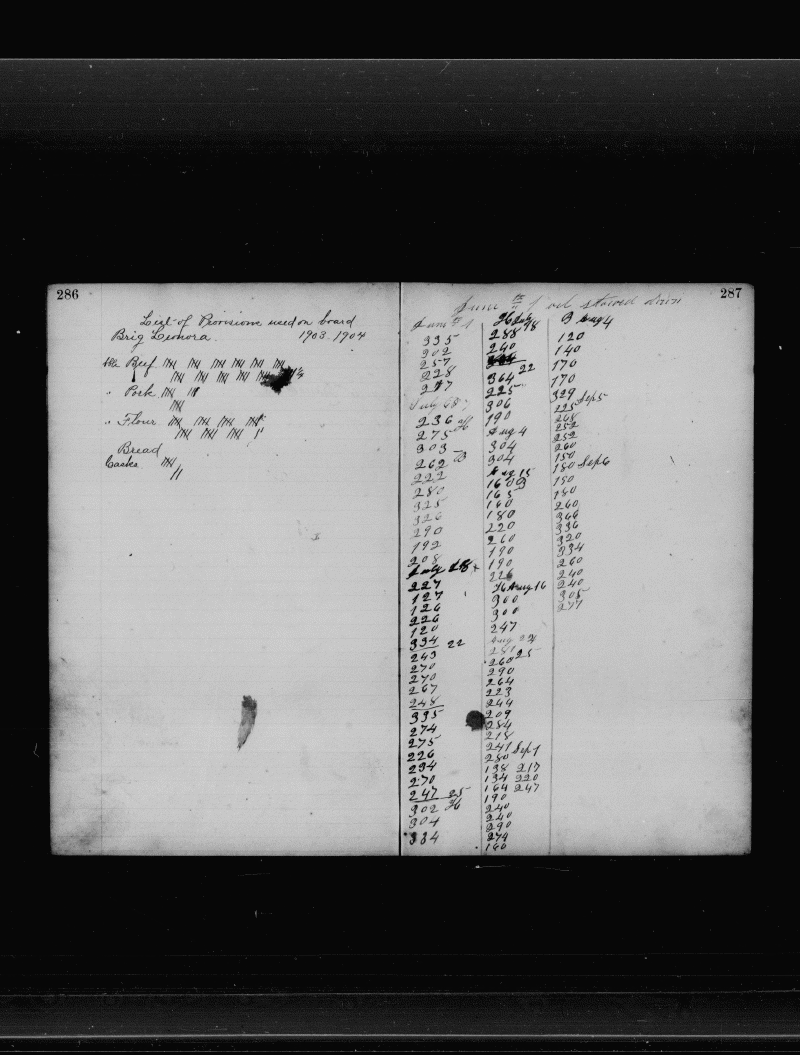 286
List of Provisions used on board
Brig Leonora. 1903-1904
Beef
" Pork
" Flour
Bread
Casks
287
June 1 stowed down
335
302
257
228
217
July
236
275
303
262
222
280
325
326
290
192
208
July 18
227
127
126
226
120
334 22
243
270
270
267
248
335
274
275
226
294
270
247 25
302
304
334
288
240
364 22
225
306
190
Aug 4
304
304
Aug 15
160
165
160
180
220
260
190
190
226
Aug 16
300
300
247
Aug
281
260 25
290
264
223
244
209
284
218
241 Sep 1
280
138 217
134 220
164 247
190
240
240
290
274
160
Aug 4
120
140
170
170
329
225 Sep 5
268
252
252
260
150
180 Sep 6
150
180
260
366
336
320
334
260
240
240
305
277